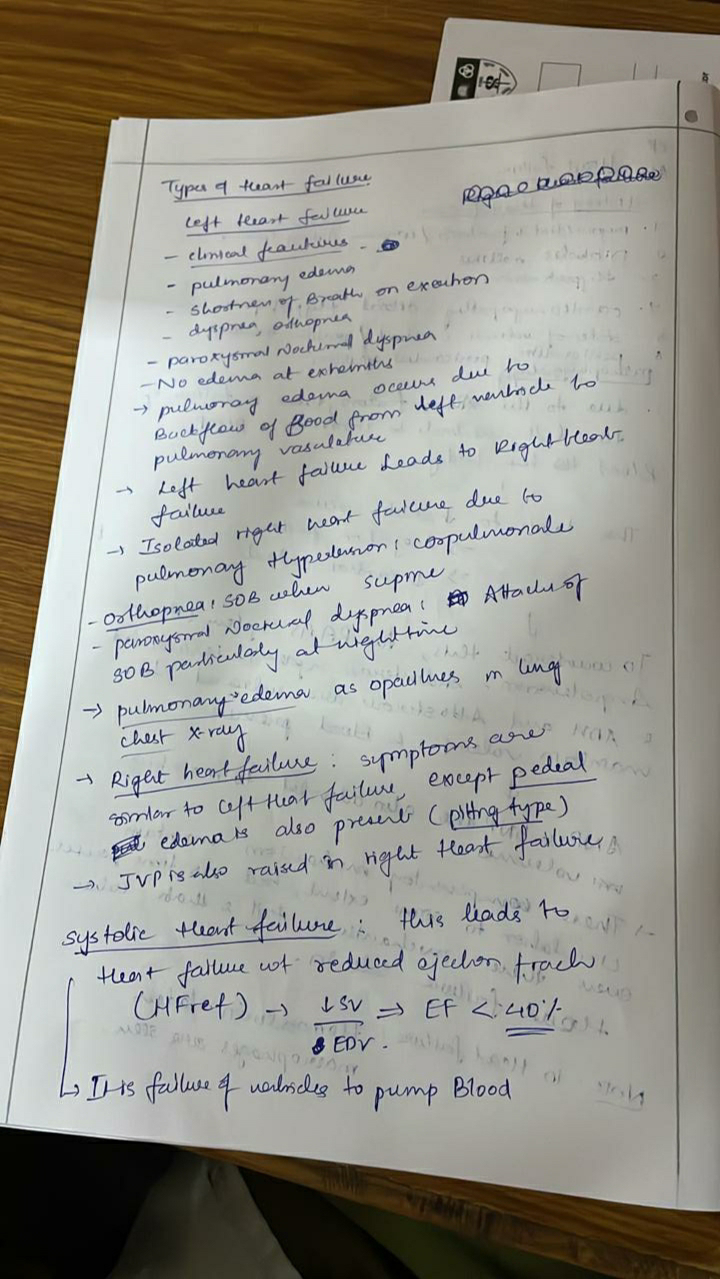 Types of Heart failure
Left Heart failure
- clinical feautures -
- pulmonary edema
- shortness of Breath on exertion
- dyspnea, orthopnea
- paroxysmal Nocturnal dyspnea
- No edema at extremiths
→ pulmonary edema occurs due to
Backflow of Blood from left ventricle to
pulmonary vasulature
→ Left heart failure Leads to Right Heart
failure
→ Isolated right heart failure due to
pulmonary Hypertension: corpulmonale
- orthopnea: SOB when supine
- paroxysmal Noctural dyspnea: Attacks of
SOB particularly at nighttime
→ pulmonary edema as opacities in lung
chest x-ray
→ Right heart failure: symptoms are
similar to Left Heat failure, except pedeal
edema is also present (pitting type)
→ JVP is also raised in right Heart failure
systolic Heart failure: this leads to
Heart failure wt reduced ejection
(HFref) → ↓SV ⇒ EF < 40%
EDV.
↳ It is failure of ventricles to pump Blood